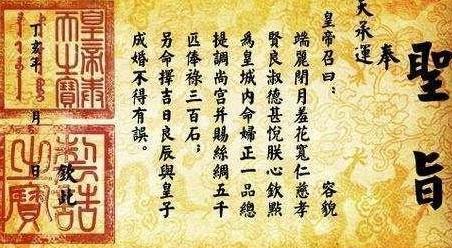 聖旨
奉
天承運
皇帝召曰： 容貌
端麗閉月羞花寬仁慈孝
賢良淑德甚悅朕心欽點
為皇城内命婦正一品總
提調尚宮并賜絲綢五千
匹俸祿三百石；
另命擇吉日良辰與皇子
成婚不得有誤。
欽此
丁亥年 月 日
皇帝奉天之寶
制誥之寶